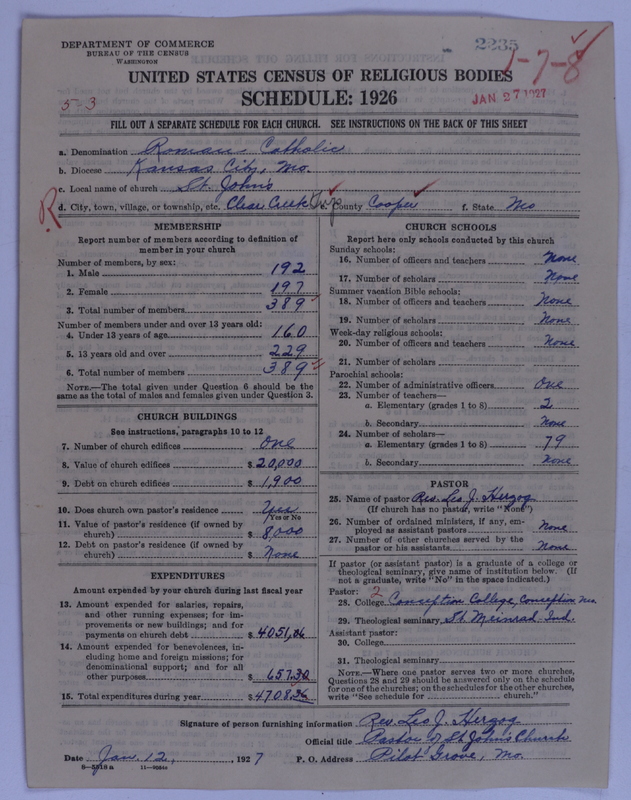 DEPARTMENT OF COMMERCE
BUREAU OF THE CENSUS
WASHINGTON
2235
1-7-8
UNITED STATES CENSUS OF RELIGIOUS BODIES
SCHEDULE: 1926
5-3
JAN 27 1927
FILL OUT A SEPARATE SCHEDULE FOR EACH CHURCH. SEE INSTRUCTIONS ON THE BACK OF THIS SHEET
a. Denomination Roman Catholic
b. Diocese Kansas City, Mo.
c. Local name of church St. John's
R d. City, town, village, or township, etc. Clear Creek Twp e. County Cooper f. State Mo
MEMBERSHIP
Report number of members according to definition of
member in your church
Number of members, by sex:
1. Male 192
2. Female 197
3. Total number of members 389
Number of members under and over 13 years old:
4. Under 13 years of age 160
5. 13 years old and over 229
6. Total number of members 389
NOTE.—The total given under Question 6 should be the
same as the total of males and females given under Question 3.
CHURCH BUILDINGS
See instructions, paragraphs 10 to 12
7. Number of church edifices One
8. Value of church edifices $ 20,000
9. Debt on church edifices $ 1,900
10. Does church own pastor's residence Yes
(Yes or No)
11. Value of pastor's residence (if owned by
church) $ 8,000
12. Debt on pastor's residence (if owned by
church) $ None
EXPENDITURES
Amount expended by your church during last fiscal year
13. Amount expended for salaries, repairs,
and other running expenses; for im-
provements or new buildings; and for
payments on church debt $ 4051,06
14. Amount expended for benevolences, in-
cluding home and foreign missions; for
denominational support; and for all
other purposes $ 657.30
15. Total expenditures during year $ 4708.36
CHURCH SCHOOLS
Report here only schools conducted by this church
Sunday schools:
16. Number of officers and teachers None
17. Number of scholars None
Summer vacation Bible schools:
18. Number of officers and teachers None
19. Number of scholars None
Week-day religious schools:
20. Number of officers and teachers None
21. Number of scholars
Parochial schools:
22. Number of administrative officers One
23. Number of teachers—
a. Elementary (grades 1 to 8) 2
b. Secondary None
24. Number of scholars—
a. Elementary (grades 1 to 8) 79
b. Secondary None
PASTOR
25. Name of pastor Rev. Leo J. Herzog
(If church has no pastor, write "None")
26. Number of ordained ministers, if any, em-
ployed as assistant pastors None
27. Number of other churches served by the
pastor or his assistants None
If pastor (or assistant pastor) is a graduate of a college or
theological seminary, give name of institution below. (If
not a graduate, write "No" in the space indicated.)
Pastor: 2
28. College Conception College, Conception Mo.
29. Theological seminary St. Meinrad Ind.
Assistant pastor:
30. College
31. Theological seminary
NOTE.—Where one pastor serves two or more churches,
Questions 28 and 29 should be answered only on the schedule
for one of the churches; on the schedules for the other churches,
write "See schedule for church."
Signature of person furnishing information Rev. Leo J. Herzog
Official title Pastor of St. John's Church
Date Jan. 12, 1927 P. O. Address Pilot Grove, Mo.